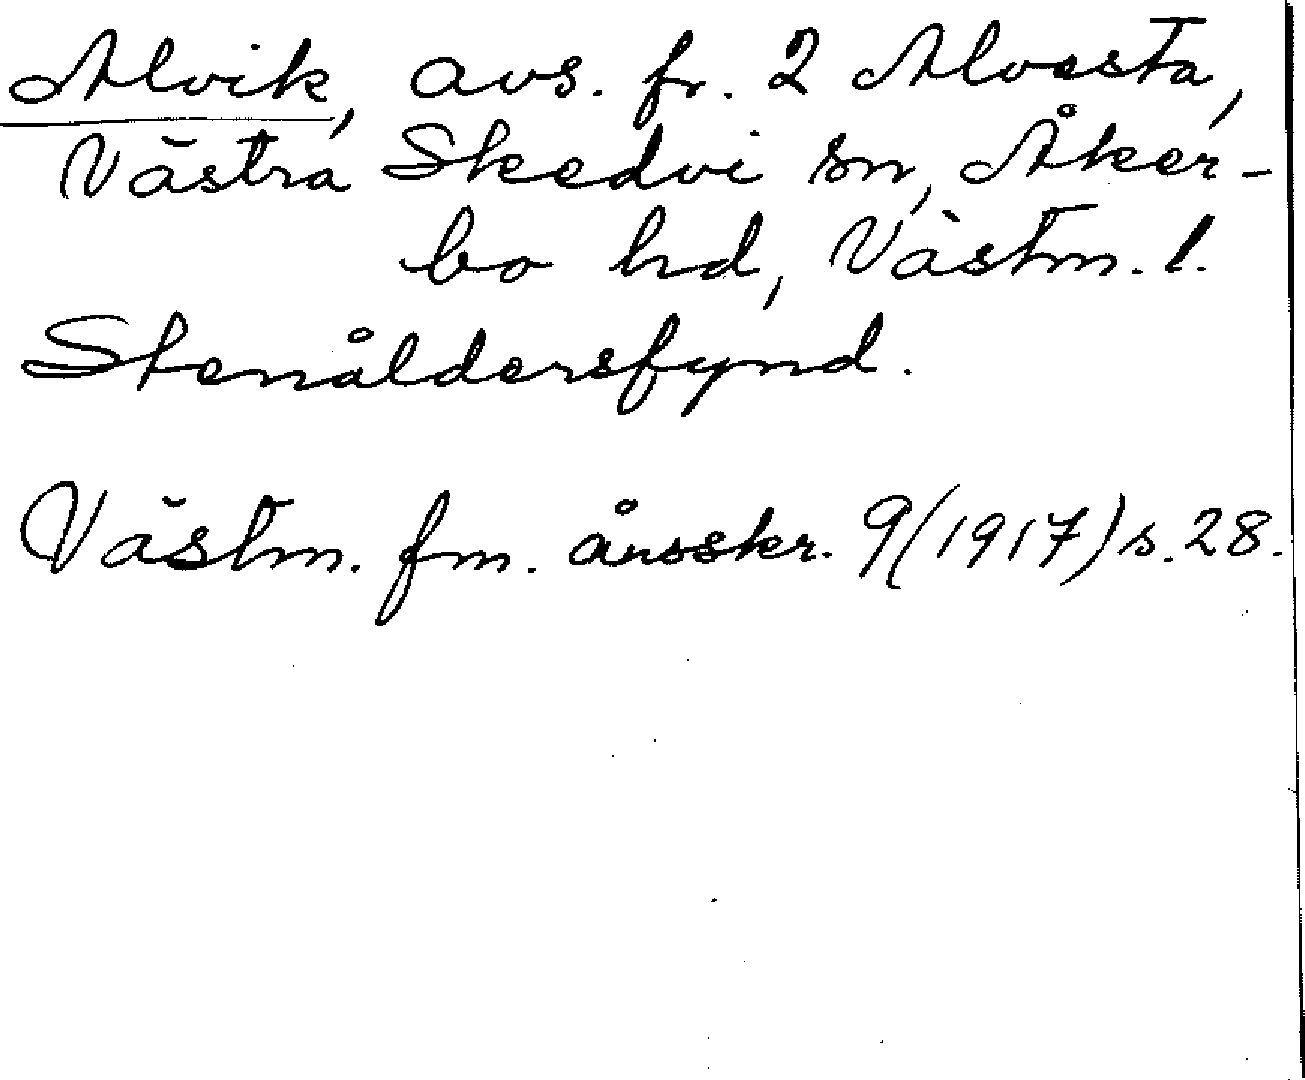 Alvik, avs. fr. 2 Alvesta,
Västra Skedvi sn, Åker-
bo hd, Västm. l.
Stenåldersfynd.
Västm. fm. årsskr. 9(1917) s. 28.